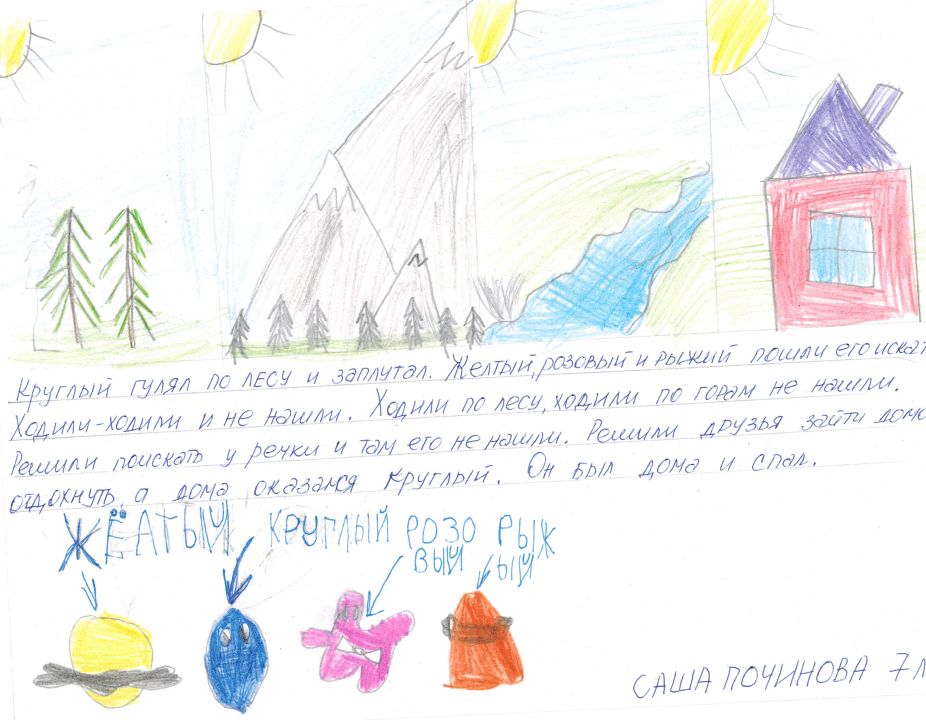 Круглый гулял по лесу и заплутал. Желтый, розовый и рыжий пошли его искат
Ходили-ходили и не нашли. Ходили по лесу, ходили по горам не нашли.
Решили поискать у речки и там его не нашли. Решили друзья зайти домо
отдохнуть, а дома оказался Круглый. Он был дома и спал.
ЖЁЛТЫЙ КРУГЛЫЙ РОЗО РЫЖ
ВЫЙ ЫЙ
САША ПОЧИНОВА 7 л